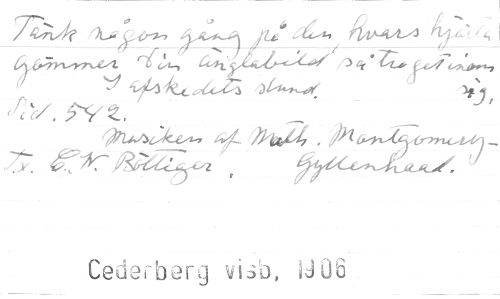 Tänk någon gång på den, hvars hjärta
gömmer Din änglabild så troget inom
I afskedets stund. sig,
Sid. 542.
Musiken af Math. Montgomery-
Tx. C. W. Böttiger. Gyllenhaal.
Cederberg visb, 1906